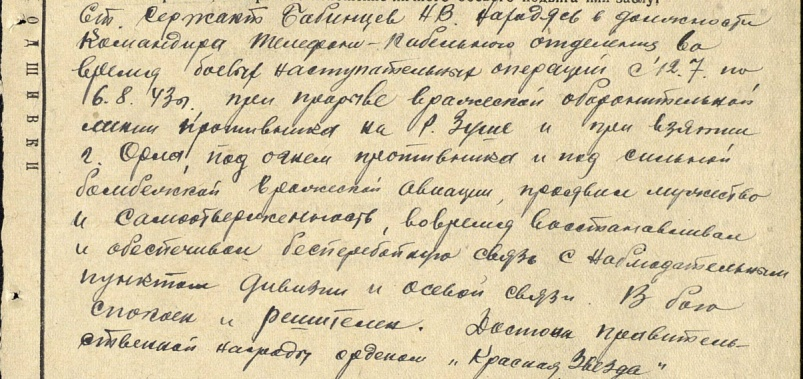 Ст. Сержант Бабинцев Н.В. находясь в должности
командира телефонно-кабельного отделения во
время боевых наступательных операций с 12.7. по
6.8.43г. при прорыве вражеской оборонительной
линии противника на р. Зуше и при взятии
г. Орла, под огнем противника и под сильной
бомбежкой вражеской авиации, проявил мужество
и самоотверженность, вовремя восстанавливал
и обеспечивал бесперебойную связь с наблюдательным
пунктом дивизии и осевой связи. В бою
спокоен и решителен. Достоин правитель-
ственной награды орденом „Красная Звезда"
ПОДШИВКИ